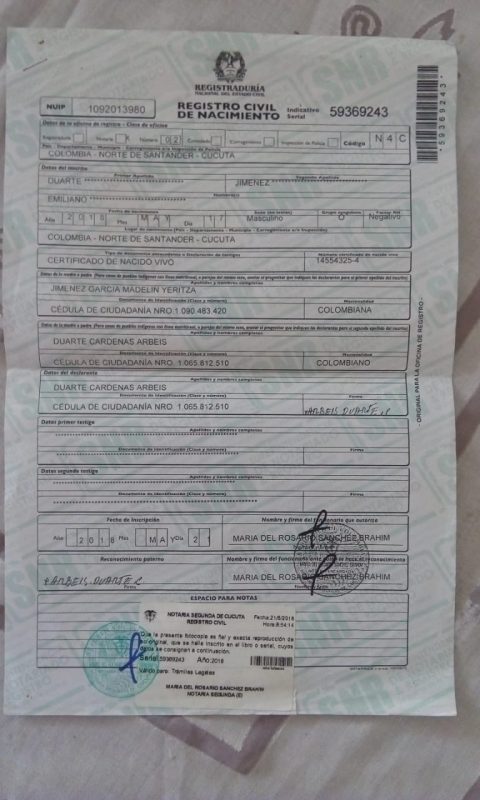 REGISTRADURÍA
NACIONAL DEL ESTADO CIVIL
NUIP 1092013980
REGISTRO CIVIL DE NACIMIENTO
Indicativo Serial 59369243
*59369243*
Datos de la oficina de registro - Clase de oficina
Registraduría Notaría X Número 02 Consulado Corregimiento Inspección de Policía Código N 4 C
País - Departamento - Municipio - Corregimiento e/o Inspección de Policía
COLOMBIA - NORTE DE SANTANDER - CUCUTA
Datos del inscrito
Primer Apellido Segundo Apellido
DUARTE JIMENEZ
Nombre(s)
EMILIANO
Fecha de nacimiento Sexo (en letras) Grupo sanguíneo Factor RH
Año Mes MAY Día Masculino O Negativo
Lugar de nacimiento (País - Departamento - Municipio - Corregimiento e/o Inspección)
COLOMBIA - NORTE DE SANTANDER - CUCUTA
Tipo de documento antecedente o Declaración de testigos Número certificado de nacido vivo
CERTIFICADO DE NACIDO VIVO 14554325-4
Apellidos y nombres completos
JIMENEZ GARCIA MADELIN YERITZA
Documento de identificación (Clase y número) Nacionalidad
CÉDULA DE CIUDADANÍA NRO. 1.090.483.420 COLOMBIANA
Apellidos y nombres completos
DUARTE CARDENAS ARBEIS
Documento de identificación (Clase y número) Nacionalidad
CÉDULA DE CIUDADANÍA NRO. 1.065.812.510 COLOMBIANO
Datos del declarante
Apellidos y nombres completos
DUARTE CARDENAS ARBEIS
Documento de identificación (Clase y número) Firma
CÉDULA DE CIUDADANÍA NRO. 1.065.812.510 ARBEIS DUARTE C
Datos primer testigo
Apellidos y nombres completos
Documento de identificación (Clase y número) Firma
Datos segundo testigo
Apellidos y nombres completos
Documento de identificación (Clase y número) Firma
Fecha de inscripción Nombre y firma del funcionario que autoriza
Año Mes MAY Día 21 MARIA DEL ROSARIO SANCHEZ BRAHIM
Reconocimiento paterno Nombre y firma del funcionario ante quien se hace el reconocimiento
ARBEIS DUARTE C MARIA DEL ROSARIO SANCHEZ BRAHIM
Firma
ESPACIO PARA NOTAS
NOTARIA SEGUNDA DE CUCUTA
REGISTRO CIVIL
Fecha:21/5/2018
Hora:8:54:14
Que la presente fotocopia es fiel y exacta reproducción de
su original, que se halla inscrito en el libro o serial, cuyos
datos se consignan a continuación.
Serial:59369243 Año:2018
Válido para: Trámites Legales
MARIA DEL ROSARIO SANCHEZ BRAHIM
NOTARIA SEGUNDA (E)
- ORIGINAL PARA LA OFICINA DE REGISTRO -